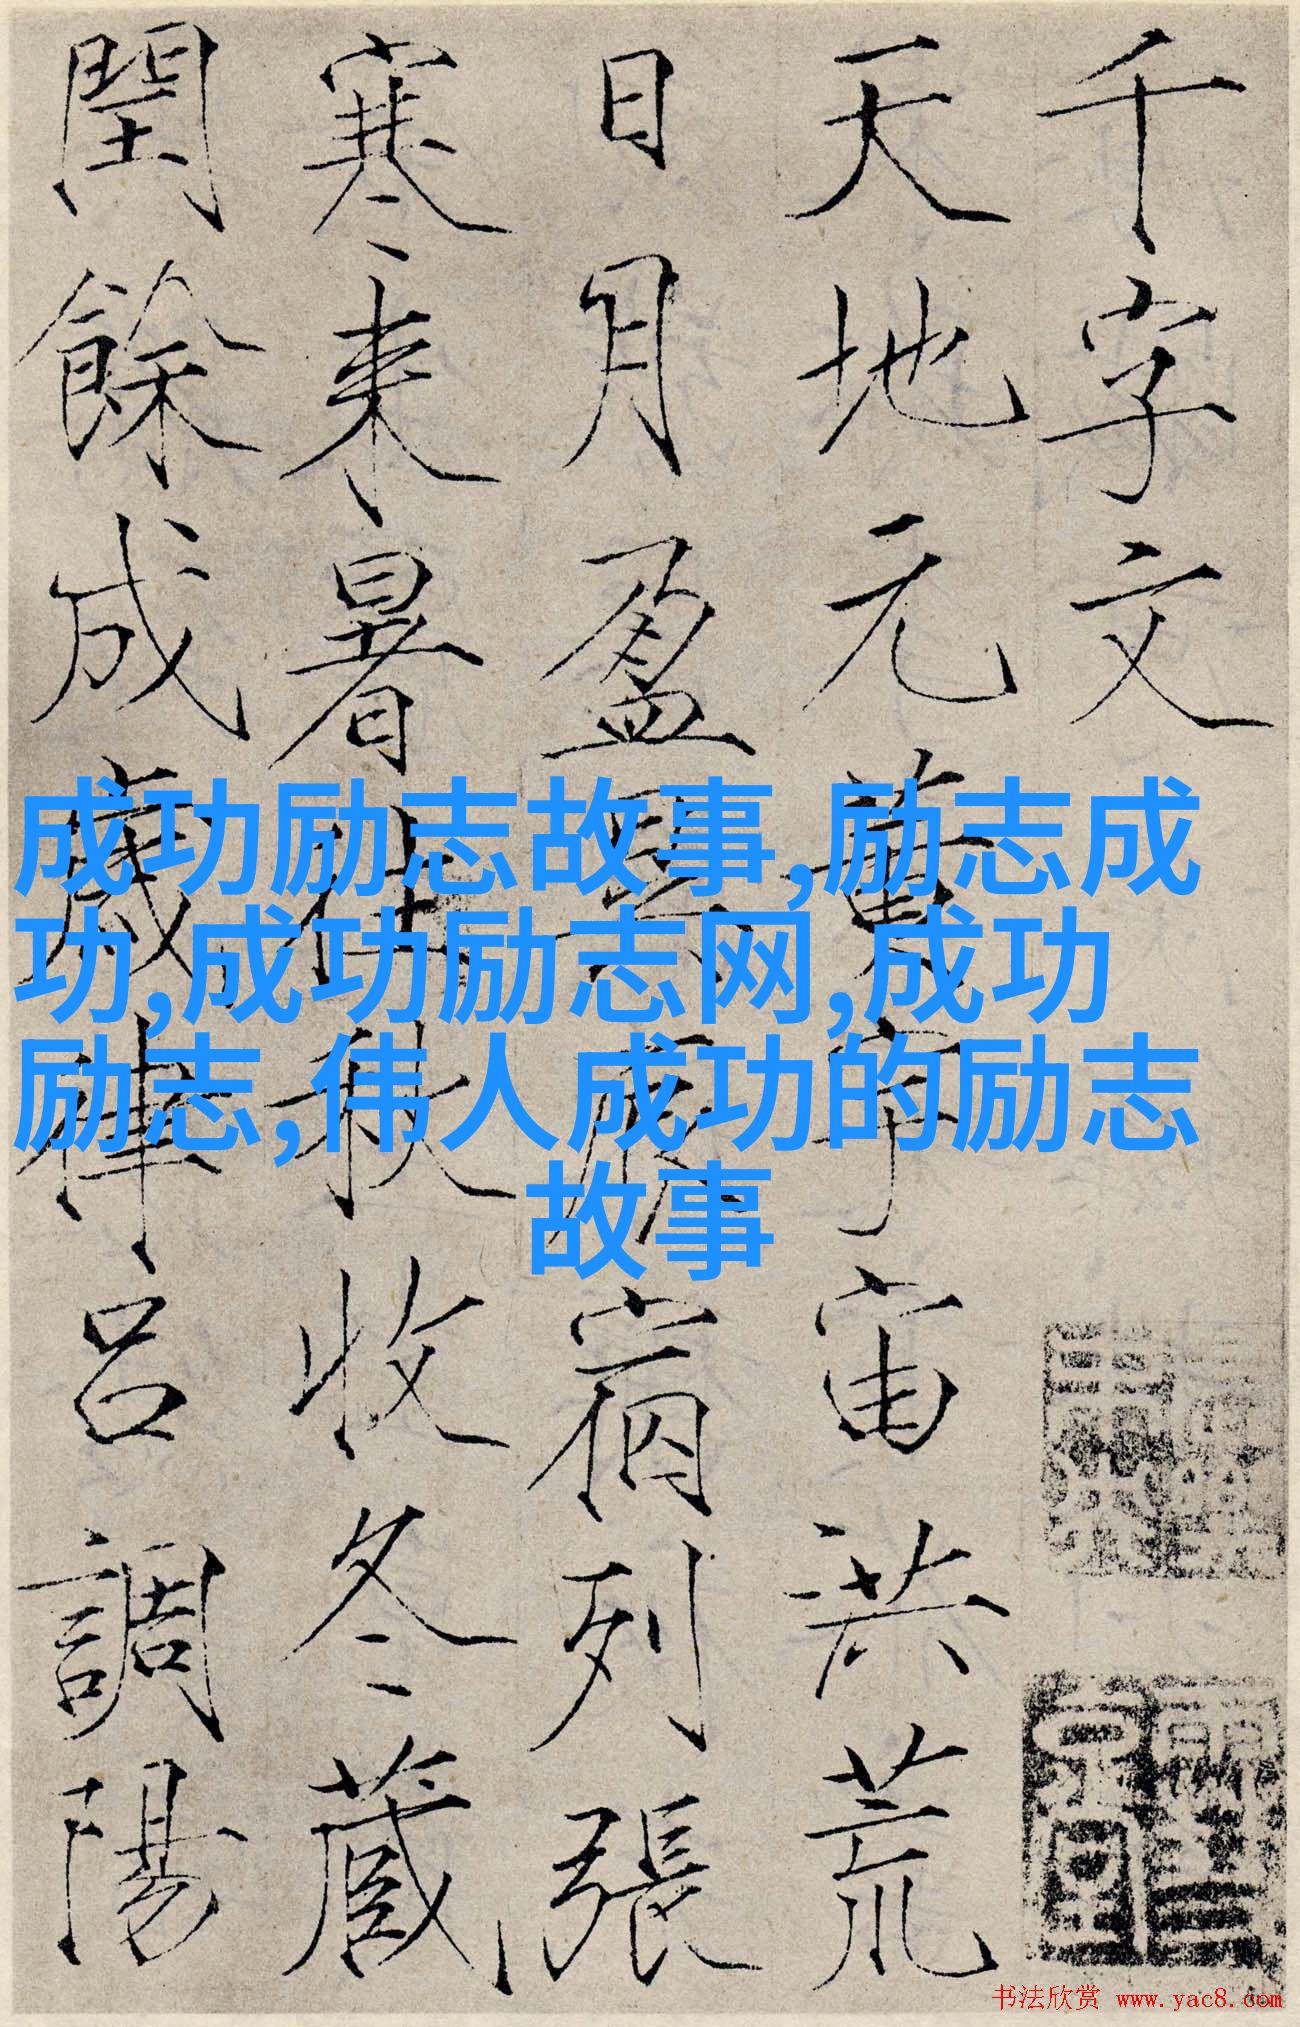 千字文
天地元黄宇宙洪荒
日月盈昃辰宿列張
寒来暑往秋收冬蔵
閏餘成歲律呂調陽
成功励志故事,励志成
功,成功励志网,成功
励志,伟人成功的励志
故事
书法欣赏 www.yac8.com